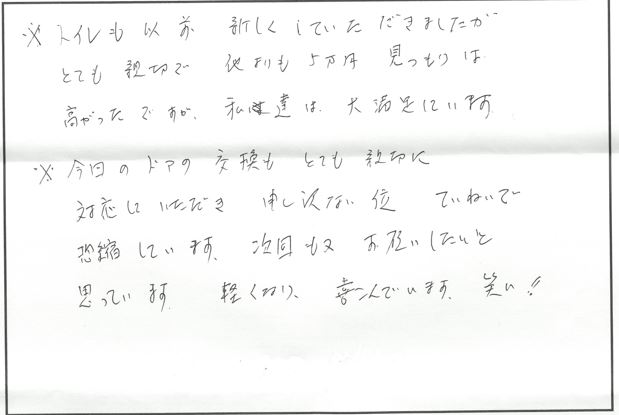 ※ トイレも以前 新しくしていただきましたが
とても親切で 他よりも5万円 見つもりは
高かったですが、私達は 大満足しています
※ 今回のドアの交換も とても親切に
対応していただき 申し訳ない位 ていねいで
恐縮しています。次回も又 お願いしたいと
思っています 軽くなり、喜こんでいます。笑い!!